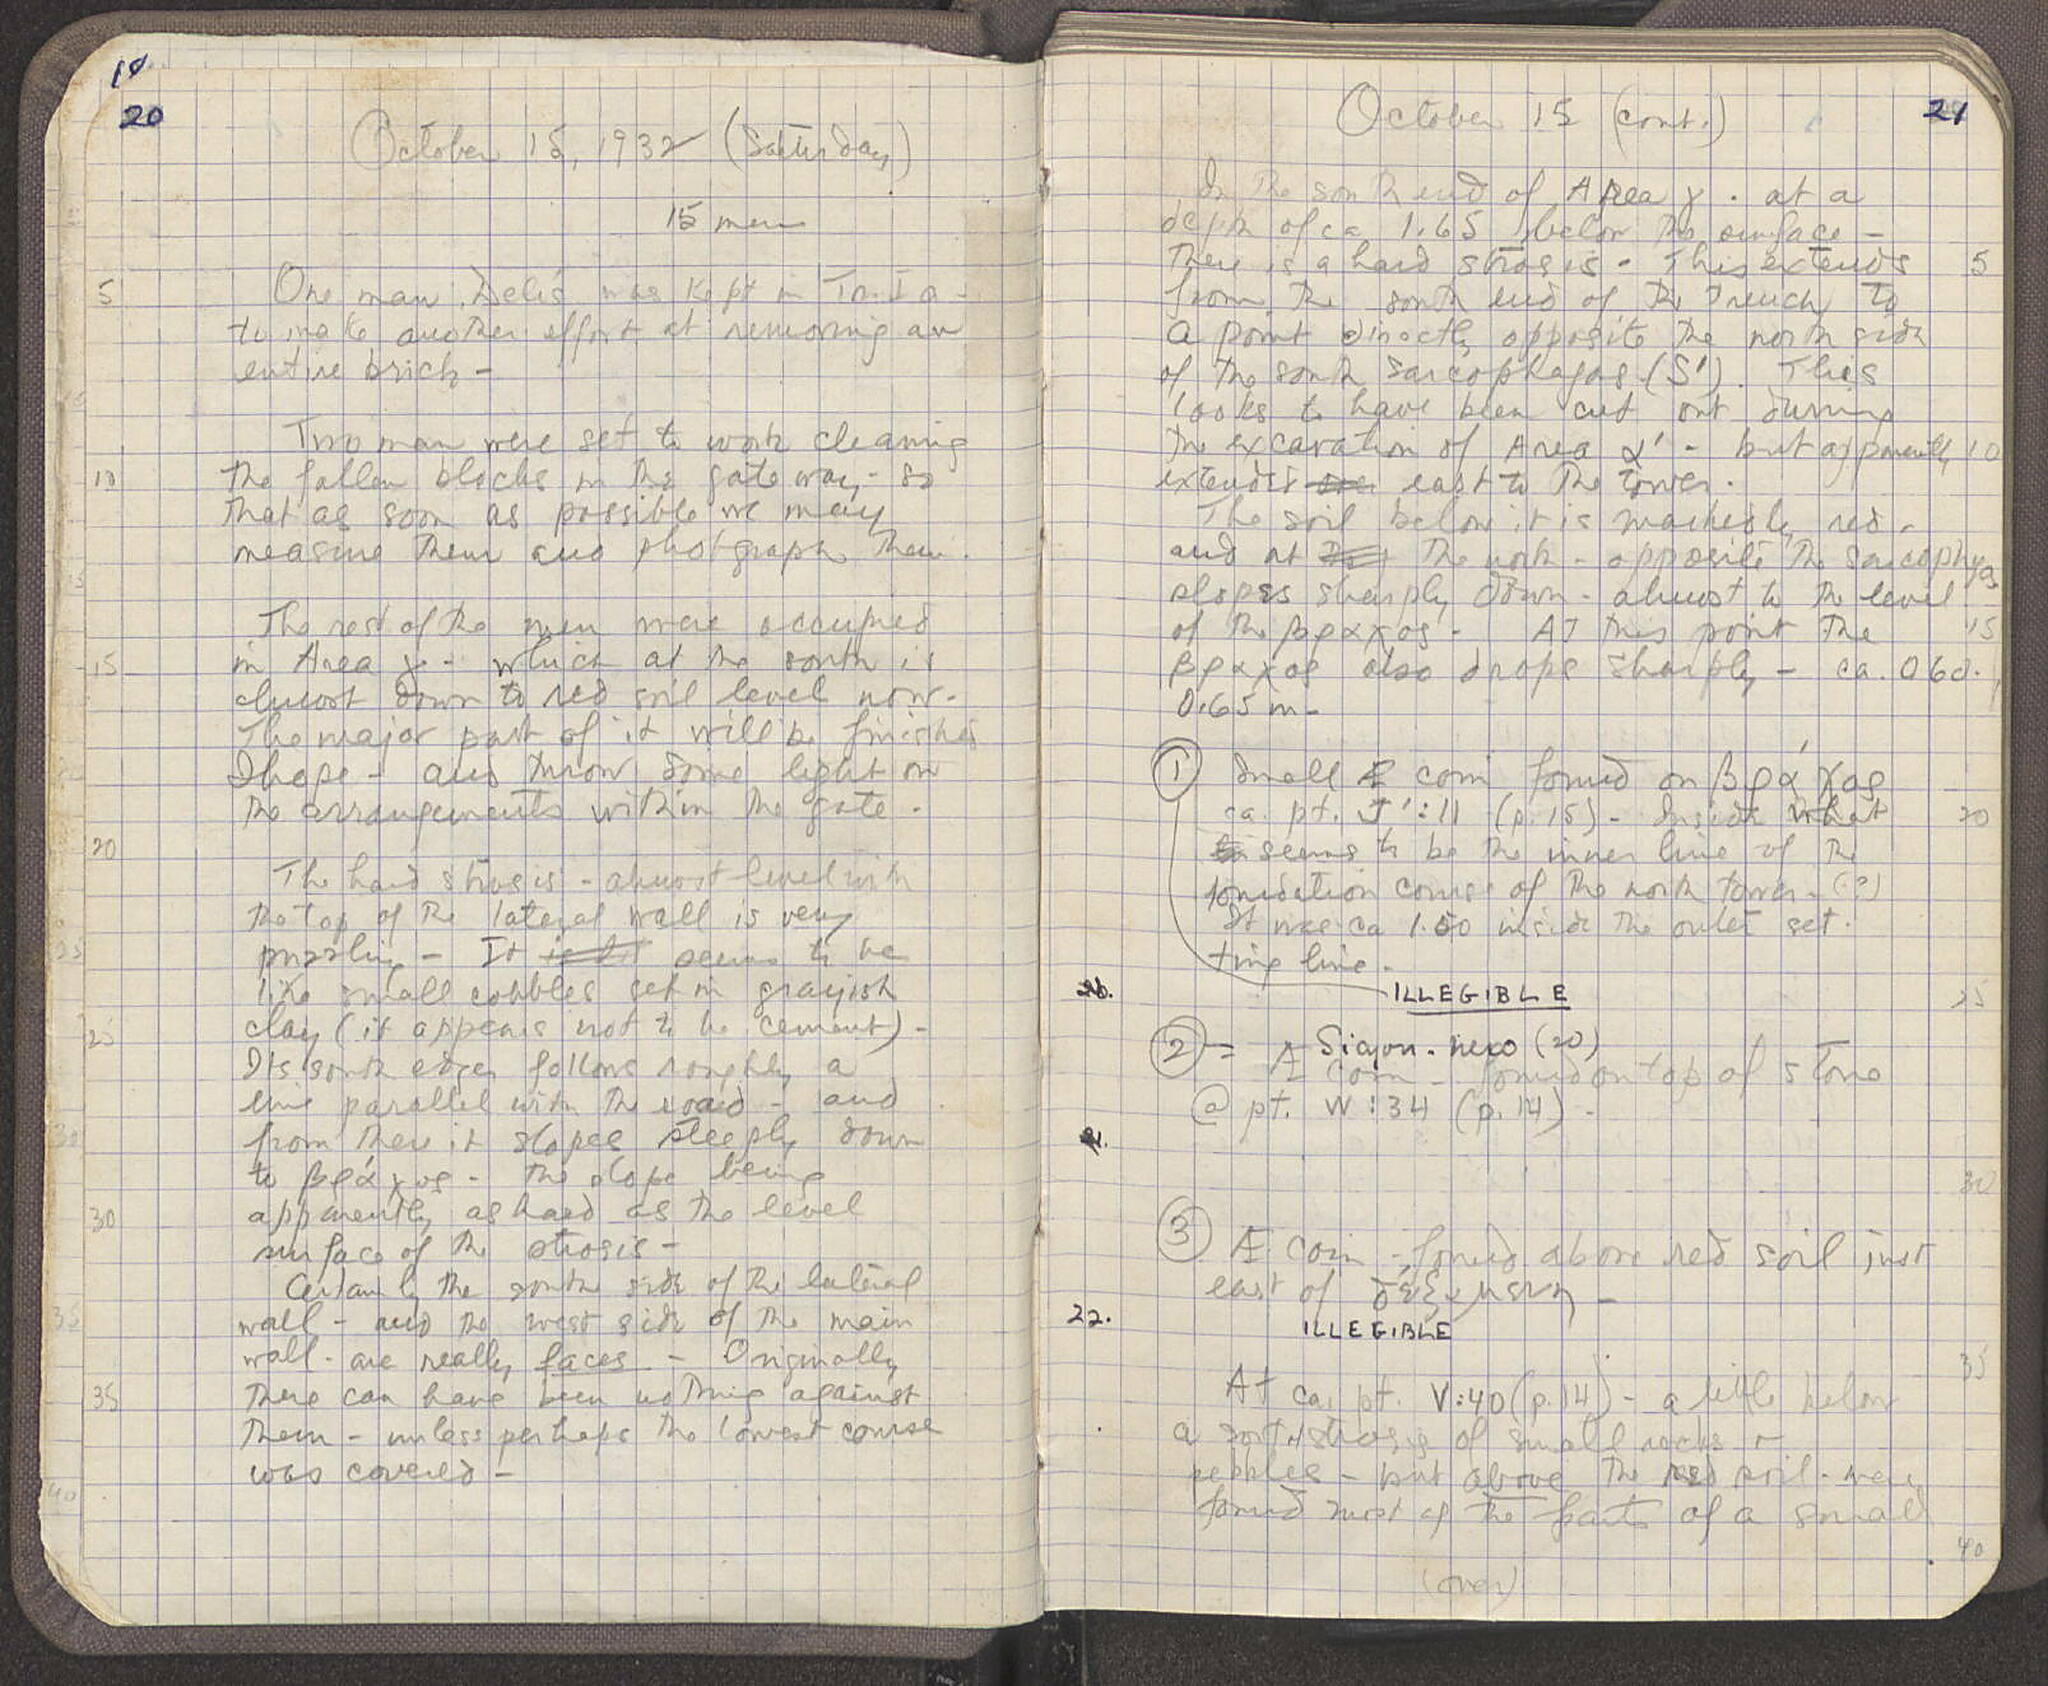 19
20
October 15, 1932 (Saturday)
15 men
5
One man, Delis was kept in Tr. I a -
to make another effort at removing an
entire brick -
Two men were set to work cleaning
10
the fallen blocks in the gate way - so
that as soon as possible we may
measure them and photograph them.
The rest of the men were occupied
15
in Area γ - which at the south is
almost down to red soil level now.
The major part of it will be finished
I hope - and throw some light on
the arrangements within the gate.
20
The hard strosis - almost level with
the top of the lateral wall is very
puzzling - It seems to be
like small cobbles set in grayish
25
clay (it appears not to be cement) -
Its south edge follows roughly a
line parallel with the road - and
from there it slopes steeply down
to βράχος - the slope being
30
apparently as hard as the level
surface of the strosis -
Certainly the south side of the lateral
wall - and the west side of the main
wall - are really faces - Originally
35
there can have been nothing against
them - unless perhaps the lowest course
was covered -
21
October 15 (cont.)
In the south end of Area γ. at a
depth of ca 1.65 below the surface -
there is a hard strosis - This extends 5
from the south end of the trench to
a point directly opposite the north side
of the south sarcophagos (S'). This
looks to have been cut out during
the excavation of Area α' - but apparently 10
extends east to the tower.
The soil below it is markedly red -
and at the north - opposite the sarcophagos
slopes sharply down - almost to the level
of the βραχος - At this point the 15
βραχος also drops sharply - ca. 0.60.
0.65 m -
① Small Æ coin found on βράχος
ca. pt. J':11 (p. 15) - Inside what 20
seems to be the inner line of the
foundation course of the north tower - (?)
It was ca 1.50 inside the outer set-
ting line.
20. ILLEGIBLE 25
② = Sicyon. new (20)
Æ coin - found on top of stone
@ pt. W:34 (p. 14) -
21.
30
③ Æ coin - found above red soil just
east of δεξαμενη -
22.
ILLEGIBLE
35
At ca. pt. V:40 (p. 14) - a little below
a sort of strosis of small rocks +
pebbles - but above the red soil - were
found most of the parts of a small
40
(over)